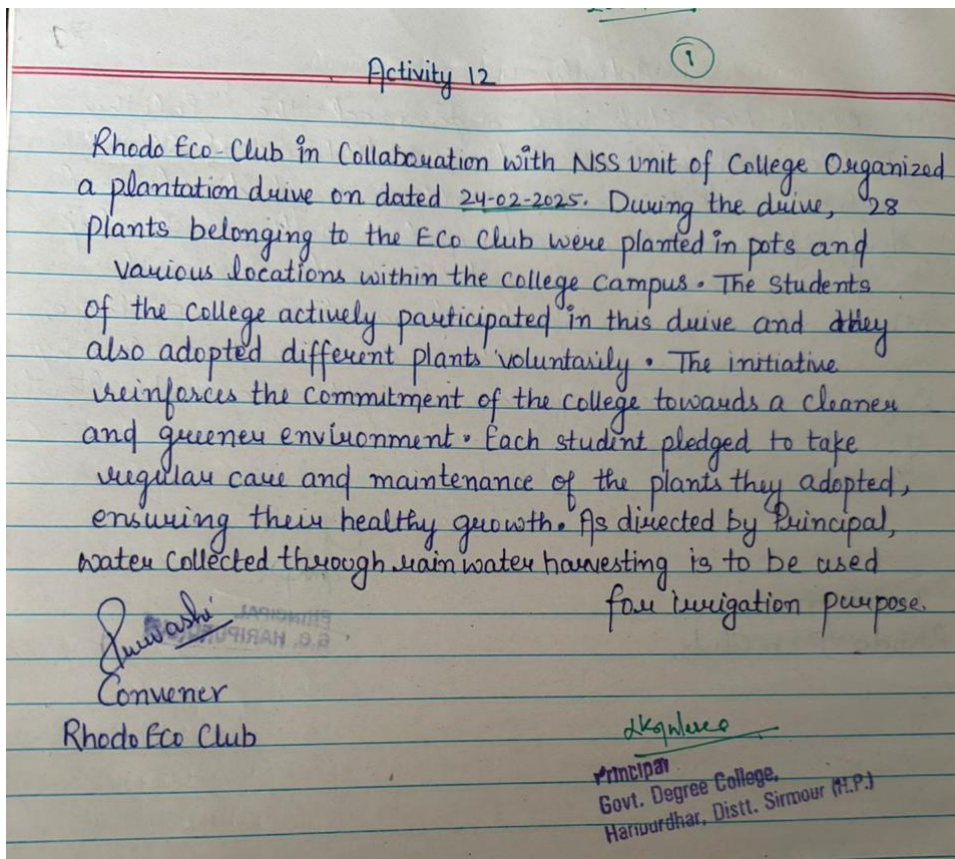 1
Activity 12
Rhodo Eco Club in Collaboration with NSS unit of College Organized
a plantation drive on dated 24-02-2025. During the drive, 28
plants belonging to the Eco Club were planted in pots and
various locations within the college campus. The Students
of the college actively participated in this drive and they
also adopted different plants voluntarily. The initiative
reinforces the commitment of the college towards a cleaner
and greener environment. Each student pledged to take
regular care and maintenance of the plants they adopted,
ensuring their healthy growth. As directed by Principal,
water collected through rain water harvesting is to be used
for irrigation purpose.
Convener
Rhodo Eco Club
Principal
Govt. Degree College,
Haripurdhar, Distt. Sirmour (H.P.)